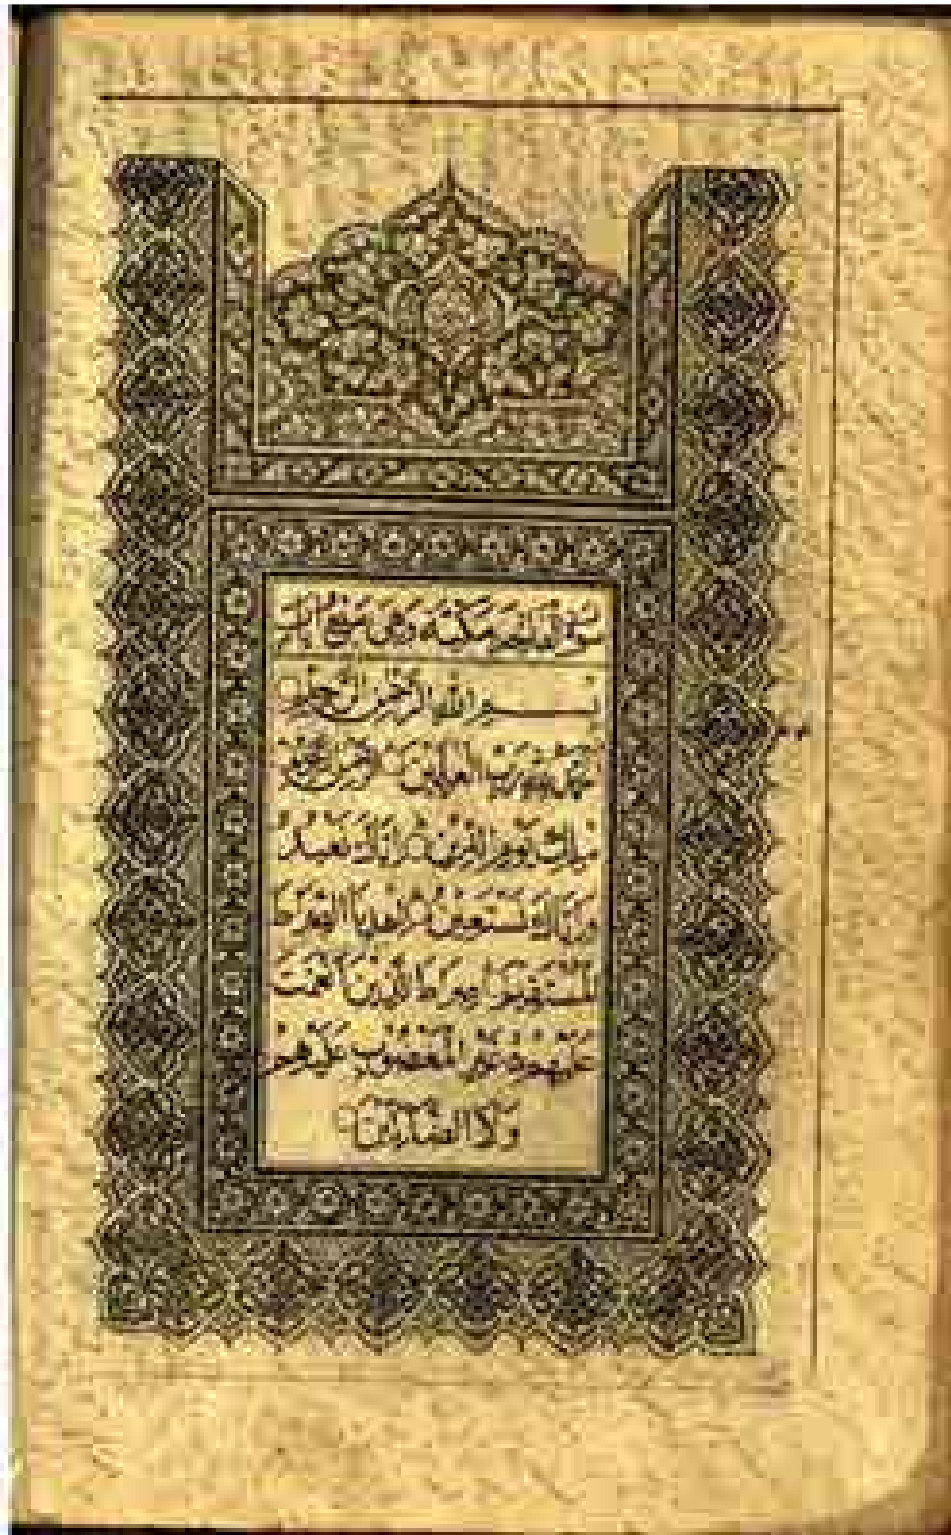 سورة الفاتحه مكية وهي سبع آيات
بسم الله الرحمن الرحيم
الحمد لله رب العالمين الرحمن الرحيم
مالك يوم الدين اياك نعبد
و اياك نستعين اهدنا الصراط
المستقيم صراط الذين انعمت
عليهم غير المغضوب عليهم
ولا الضالين